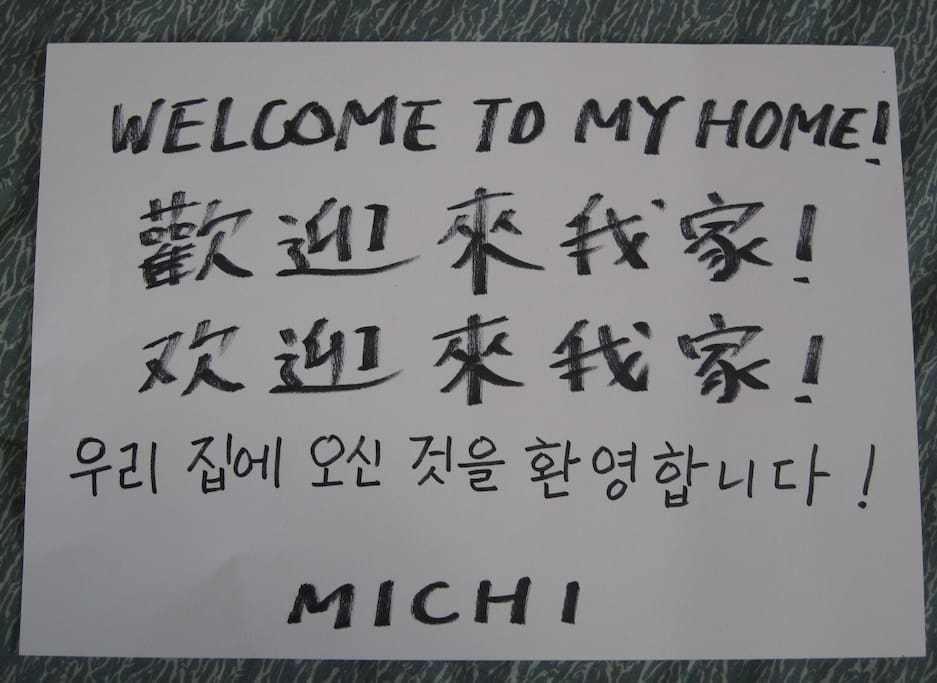 WELCOME TO MY HOME!
歡迎來我家!
欢迎來我家!
우리 집에 오신 것을 환영합니다!
MICHI